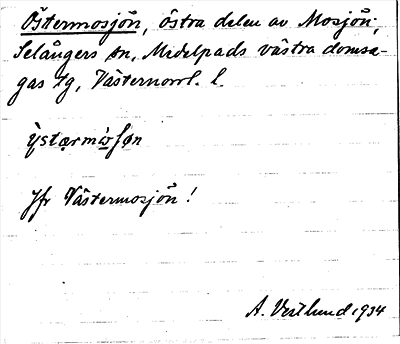 Östermosjön, östra delen av Mosjön,
Selångers sn, Medelpads västra domsa-
gas tg, Västernorrl. l.
Jfr Västermosjön!
A. Vestlund 1934